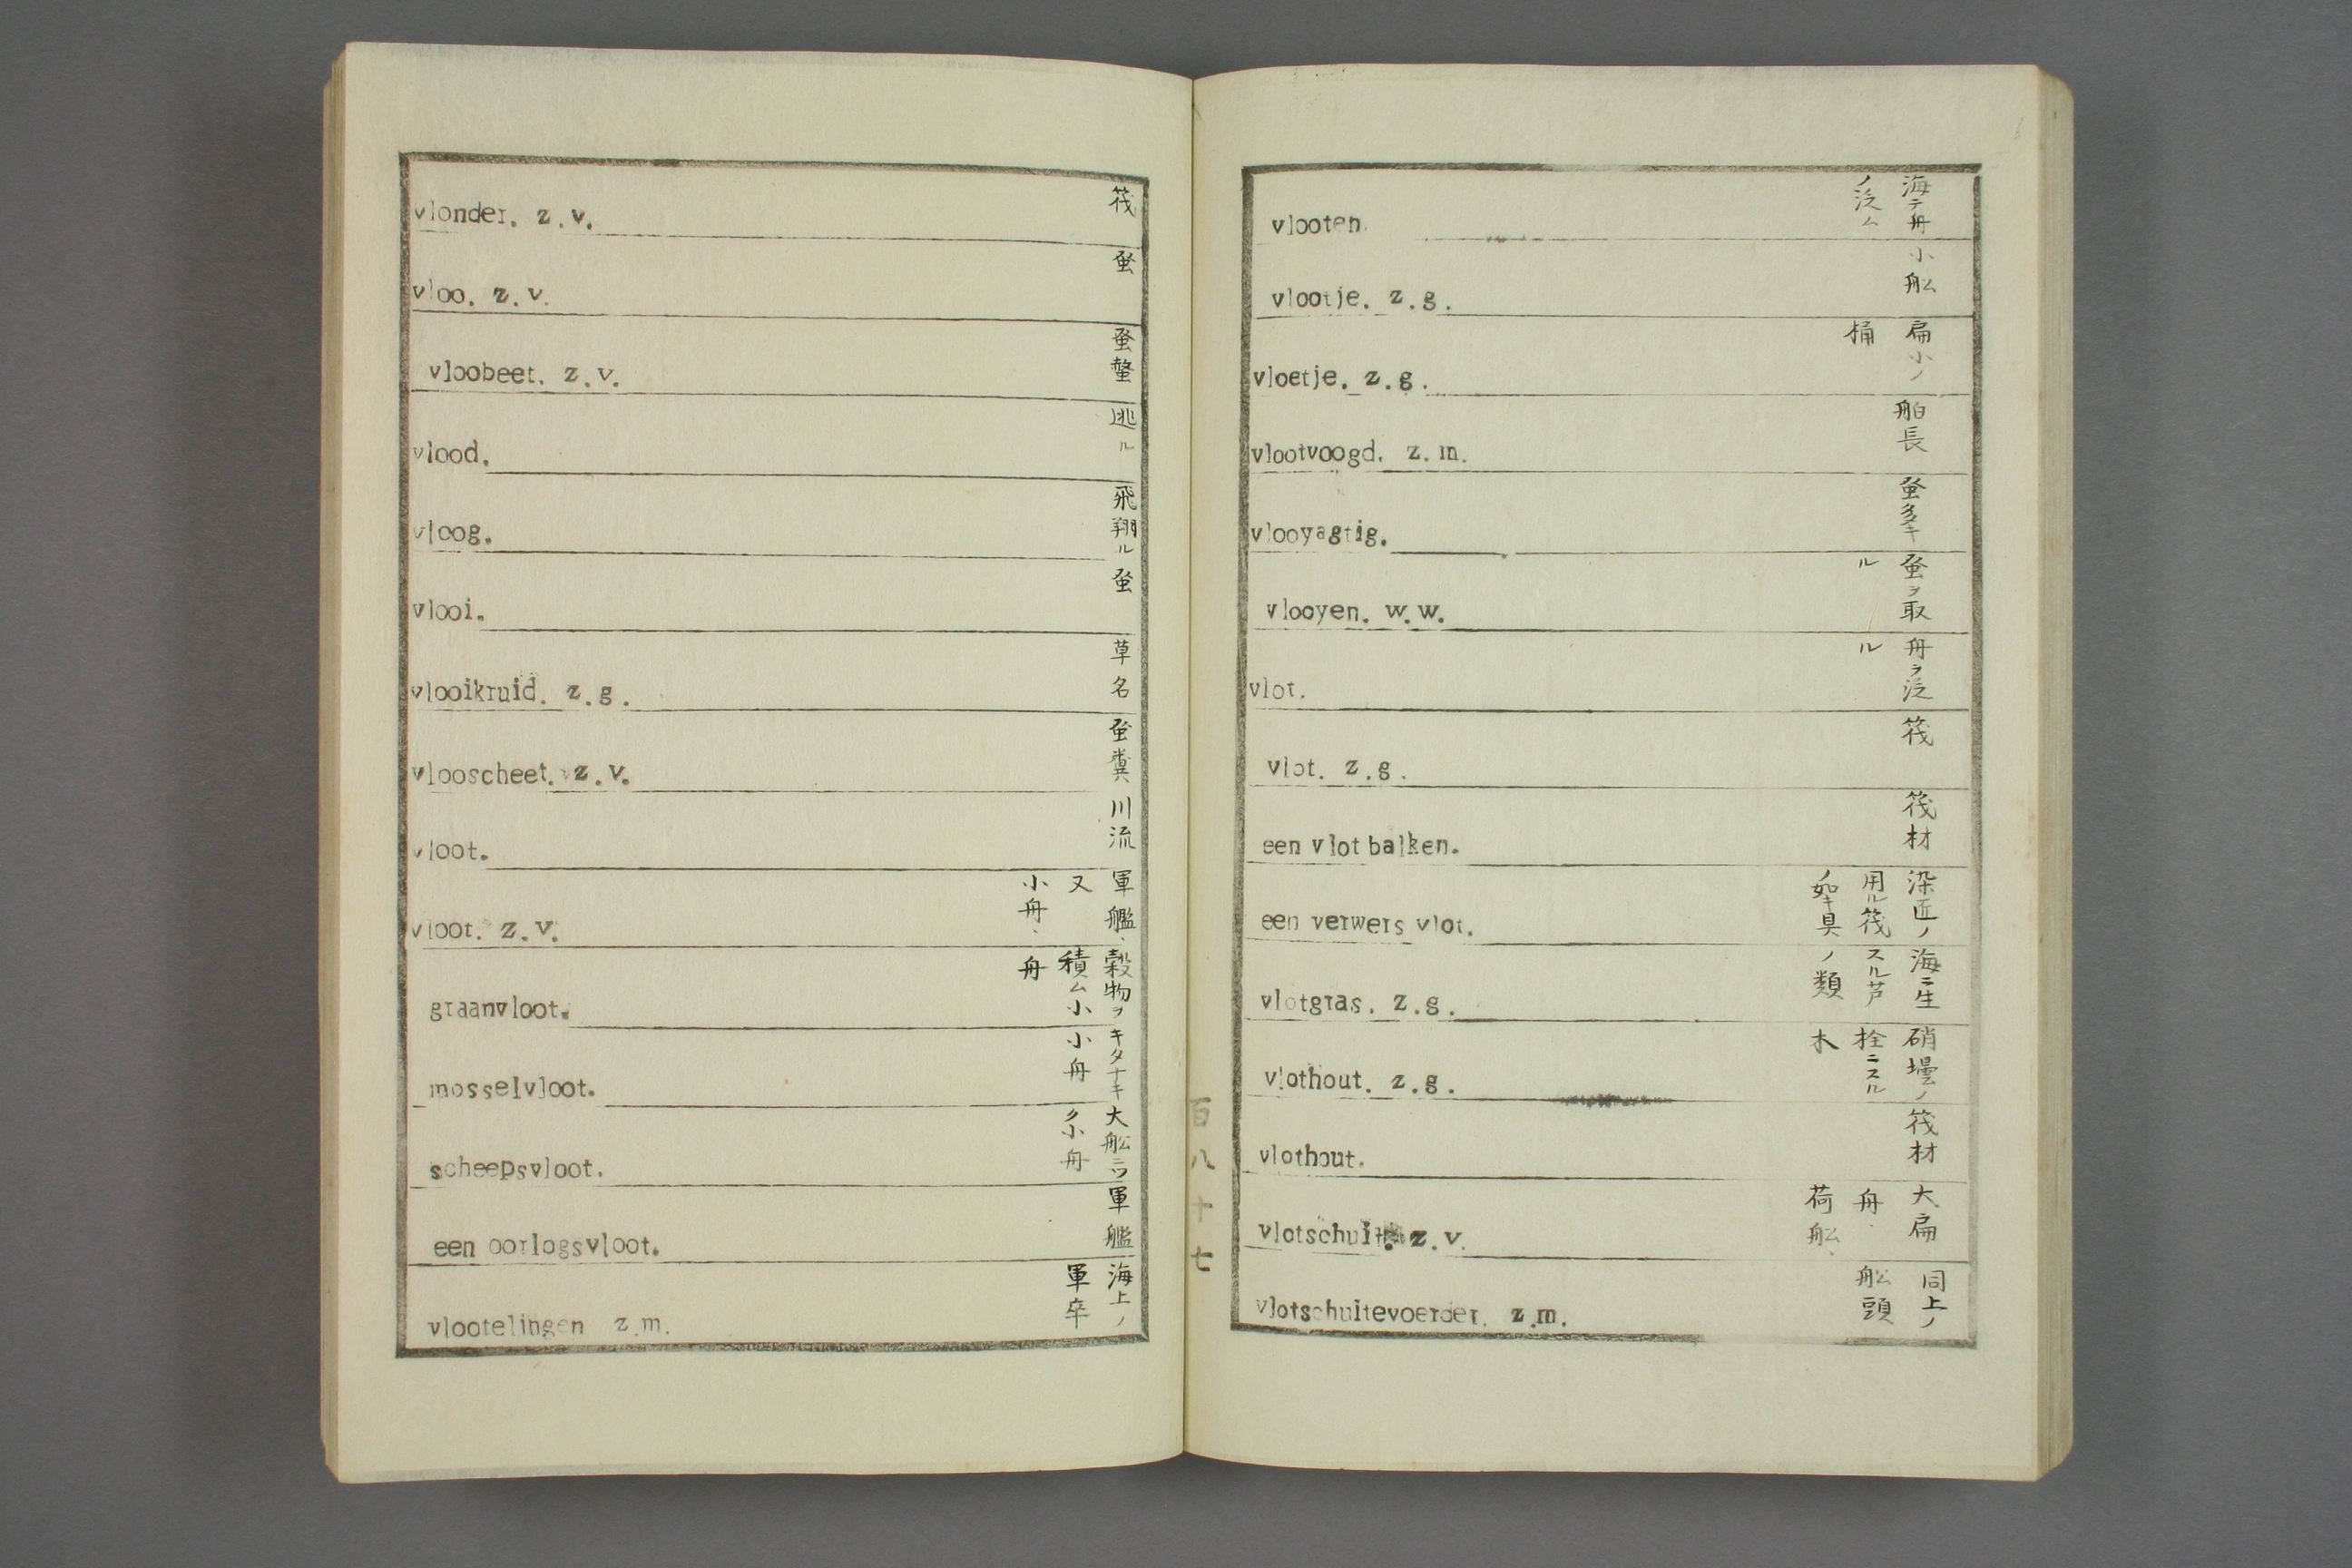 vlonder. z.v. 筏
vloo. z.v. 蚤
vloobeet. z.v. 蚤螫
vlood. 逃ル
vloog. 飛翔ル
vlooi. 蚤
vlooikruid. z.g. 草名
vlooscheet. z.v. 蚤糞
vloot. 川流
vloot. z.v. 軍艦、又小舟、
graanvloot. 穀物ヲ積ム小舟
mosselvloot. キタナキ小舟
scheepsvloot. 大舩ニツク小舟
een oorlogsvloot. 軍艦
vlootelingen z.m. 海上ノ軍卒
百八十七
vlooten. 海テ舟ノ泛ム
vlootje. z.g. 小舩
vloetje. z.g. 扁小ノ桶
vlootvoogd. z.m. 舶長
vlooyagtig. 蚤多キ
vlooyen. w.w. 蚤ヲ取ル
vlot. 舟ヲ泛ル
vlot. z.g. 筏
een vlot balken. 筏材
een verwers vlot. 染匠ノ用ル筏ノ如キ具
vlotgras. z.g. 海ニ生スル芦ノ類
vlothout. z.g. 硝壜ノ栓ニスル木
vlothout. 筏材
vlotschuit. z.v. 大扁舟、荷舩、
vlotschuitevoerder. z.m. 同上ノ舩頭